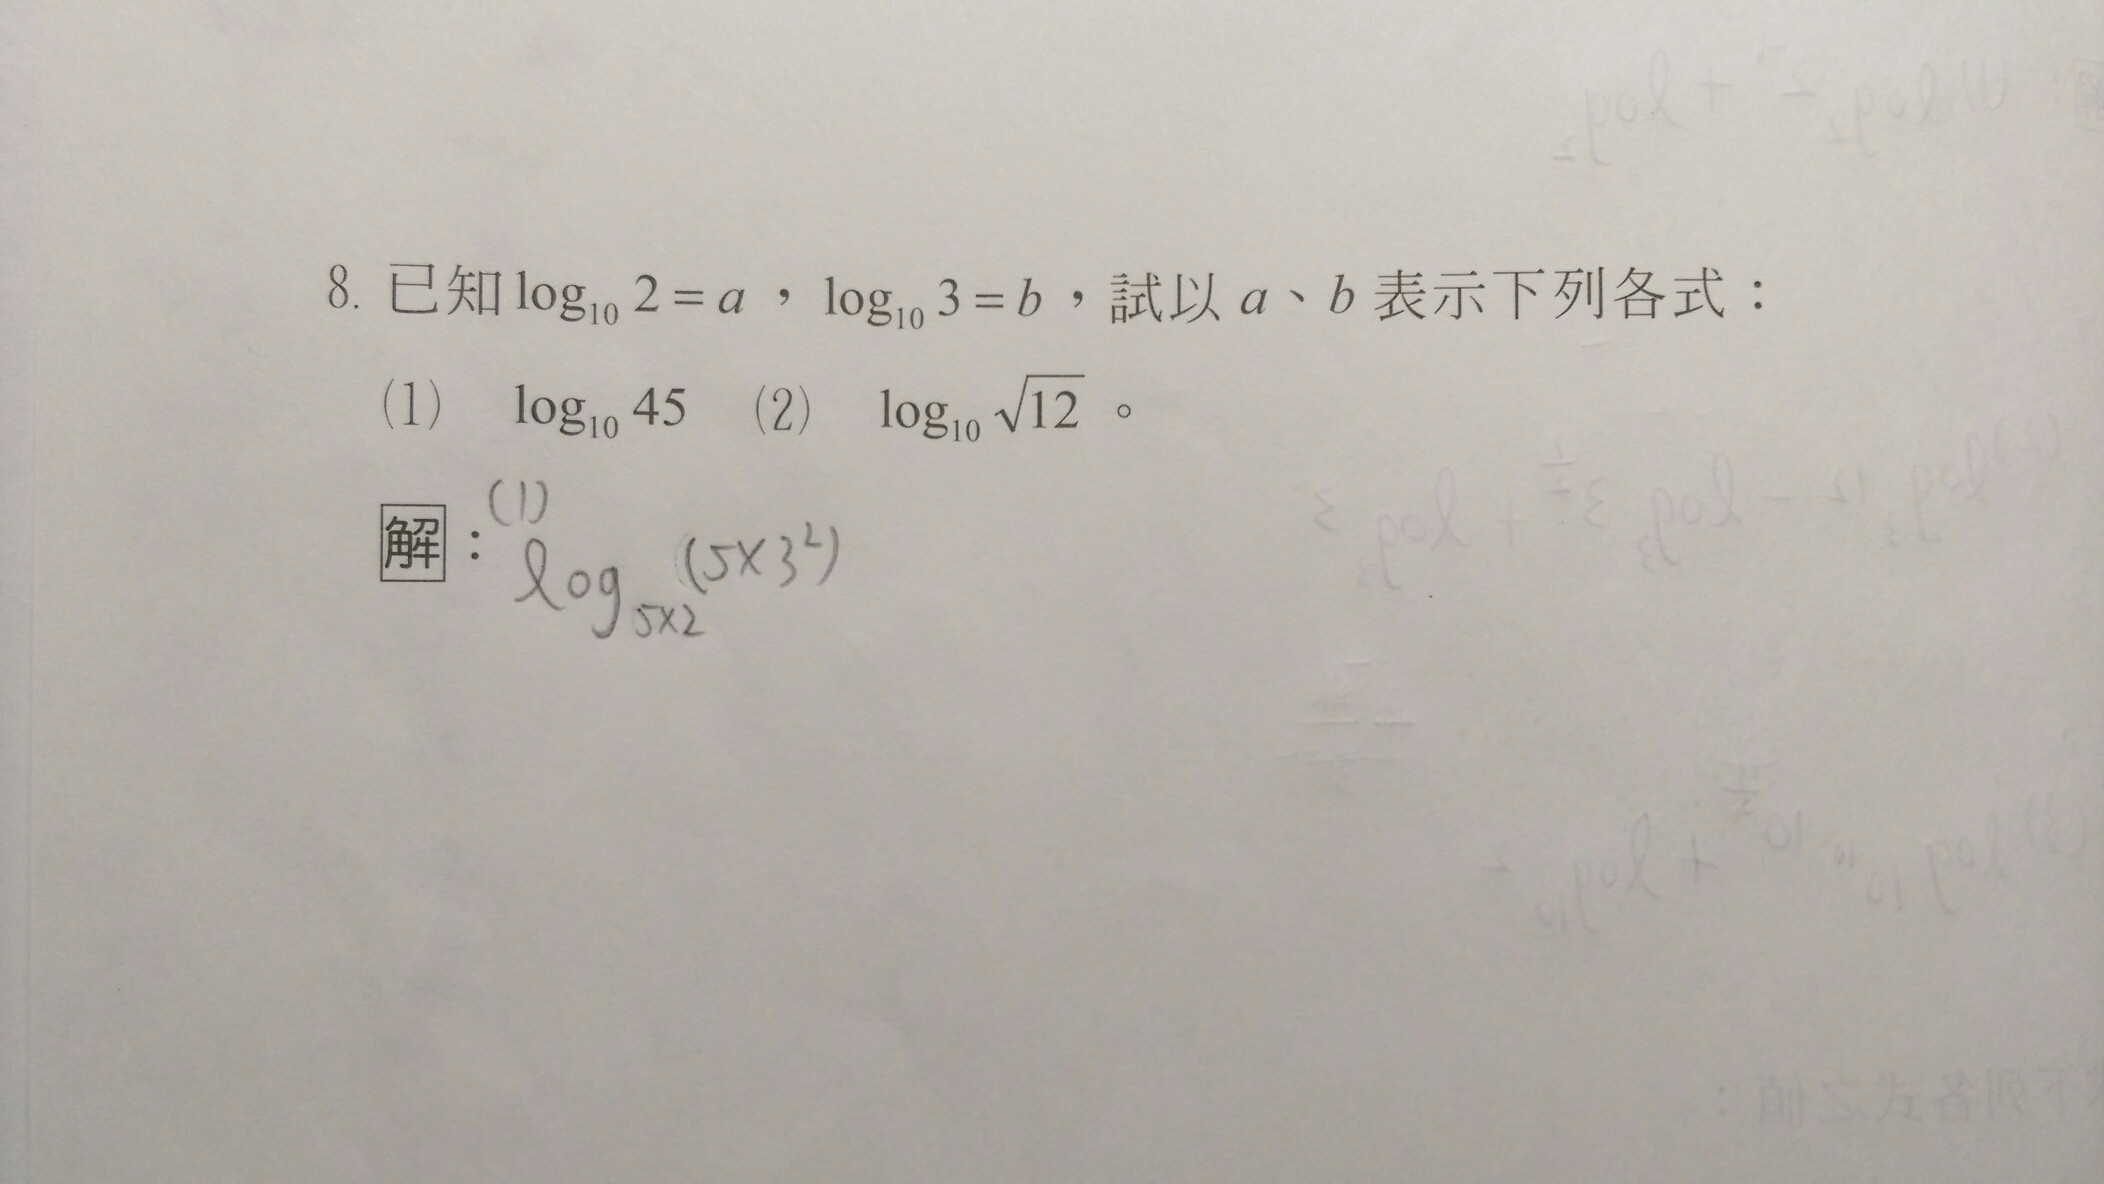 8. 已知 log₁₀ 2 = a ， log₁₀ 3 = b ，試以 a、b 表示下列各式：
(1) log₁₀ 45 (2) log₁₀ √12 。
解： (1)
log₅ₓ₂ (5×3²)